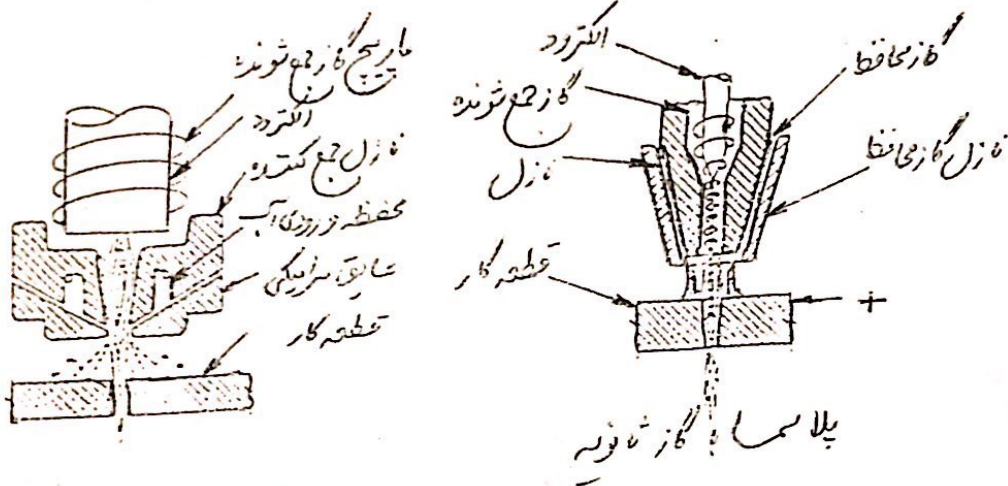 مارپیچ گاز جمع شونده
الکترود
نازل جمع کننده
محفظه ورودی آب
عایق سرامیکی
قطعه کار
الکترود
گاز جمع شونده
نازل
قطعه کار
گاز محافظ
نازل گاز محافظ
+
پلاسما با گاز ثانویه